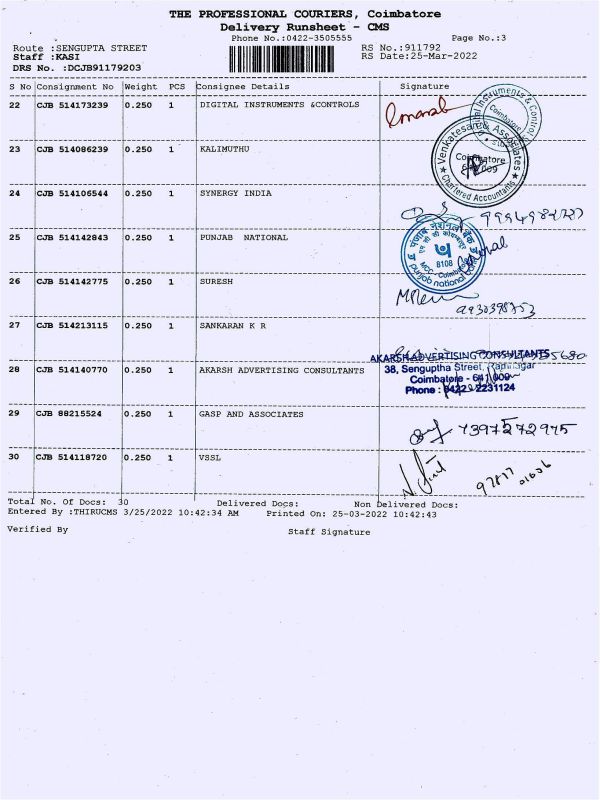 THE PROFESSIONAL COURIERS, Coimbatore
Delivery Runsheet - CMS
Phone No.:0422-3505555 Page No.:3
Route :SENGUPTA STREET RS No.:911792
Staff :KASI RS Date:25-Mar-2022
DRS No. :DCJB91179203
S No Consignment No Weight PCS Consignee Details Signature
22 CJB 514173239 0.250 1 DIGITAL INSTRUMENTS &CONTROLS
Coimbatore
23 CJB 514086239 0.250 1 KALIMUTHU
Venkatesan & Associates
Coimbatore
Chartered Accountants
24 CJB 514106544 0.250 1 SYNERGY INDIA
25 CJB 514142843 0.250 1 PUNJAB NATIONAL
पंजाब नैशनल बैंक
8108
MCC - Coimbatore
punjab national bank
26 CJB 514142775 0.250 1 SURESH
27 CJB 514213115 0.250 1 SANKARAN K R
28 CJB 514140770 0.250 1 AKARSH ADVERTISING CONSULTANTS
AKARSH ADVERTISING CONSULTANTS
38, Senguptha Street, Ramnagar
Coimbatore - 641 009
Phone : 0422-2231124
29 CJB 88215524 0.250 1 GASP AND ASSOCIATES
7397572975
30 CJB 514118720 0.250 1 VSSL
97877 01036
Total No. Of Docs: 30 Delivered Docs: Non Delivered Docs:
Entered By :THIRUCMS 3/25/2022 10:42:34 AM Printed On: 25-03-2022 10:42:43
Verified By Staff Signature